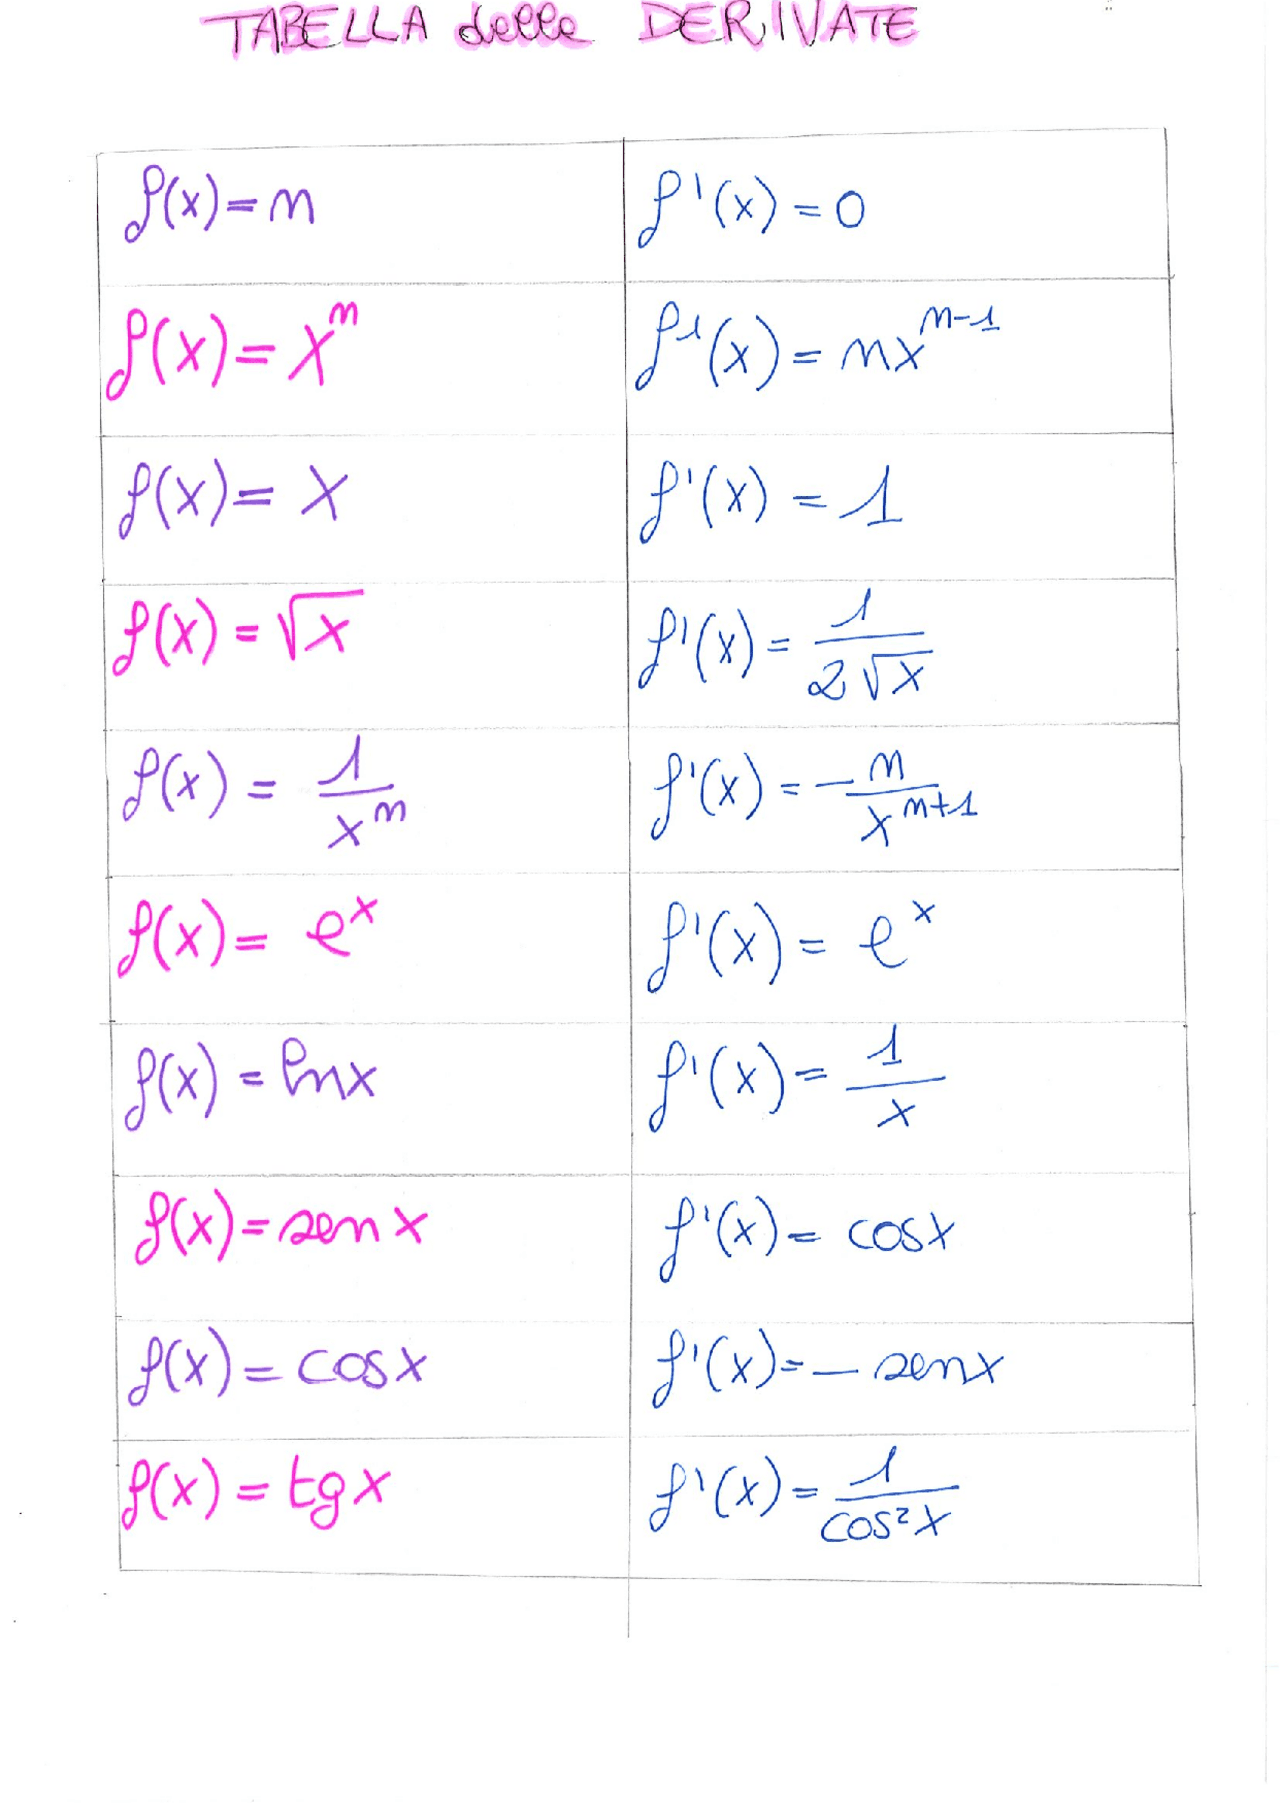 TABELLA delle DERIVATE
f(x)=n f'(x)=0
f(x)=xⁿ f'(x)=nxⁿ⁻¹
f(x)=x f'(x)=1
f(x)=√x f'(x)=1/(2√x)
f(x)=1/xⁿ f'(x)=-n/xⁿ⁺¹
f(x)=eˣ f'(x)=eˣ
f(x)=lnx f'(x)=1/x
f(x)=sen x f'(x)=cosx
f(x)=cosx f'(x)=-senx
f(x)=tgx f'(x)=1/cos²x